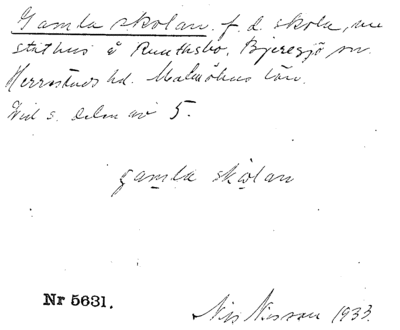 Gamla skolan. f. d. skola, nu
stathus å Ruuthsbo, Bjeresjö sn.
Herrestads hd. Malmöhus län.
Vid s. delen av 5.
gamla skolan
Nr 5631.
Nils Nilsson 1933.